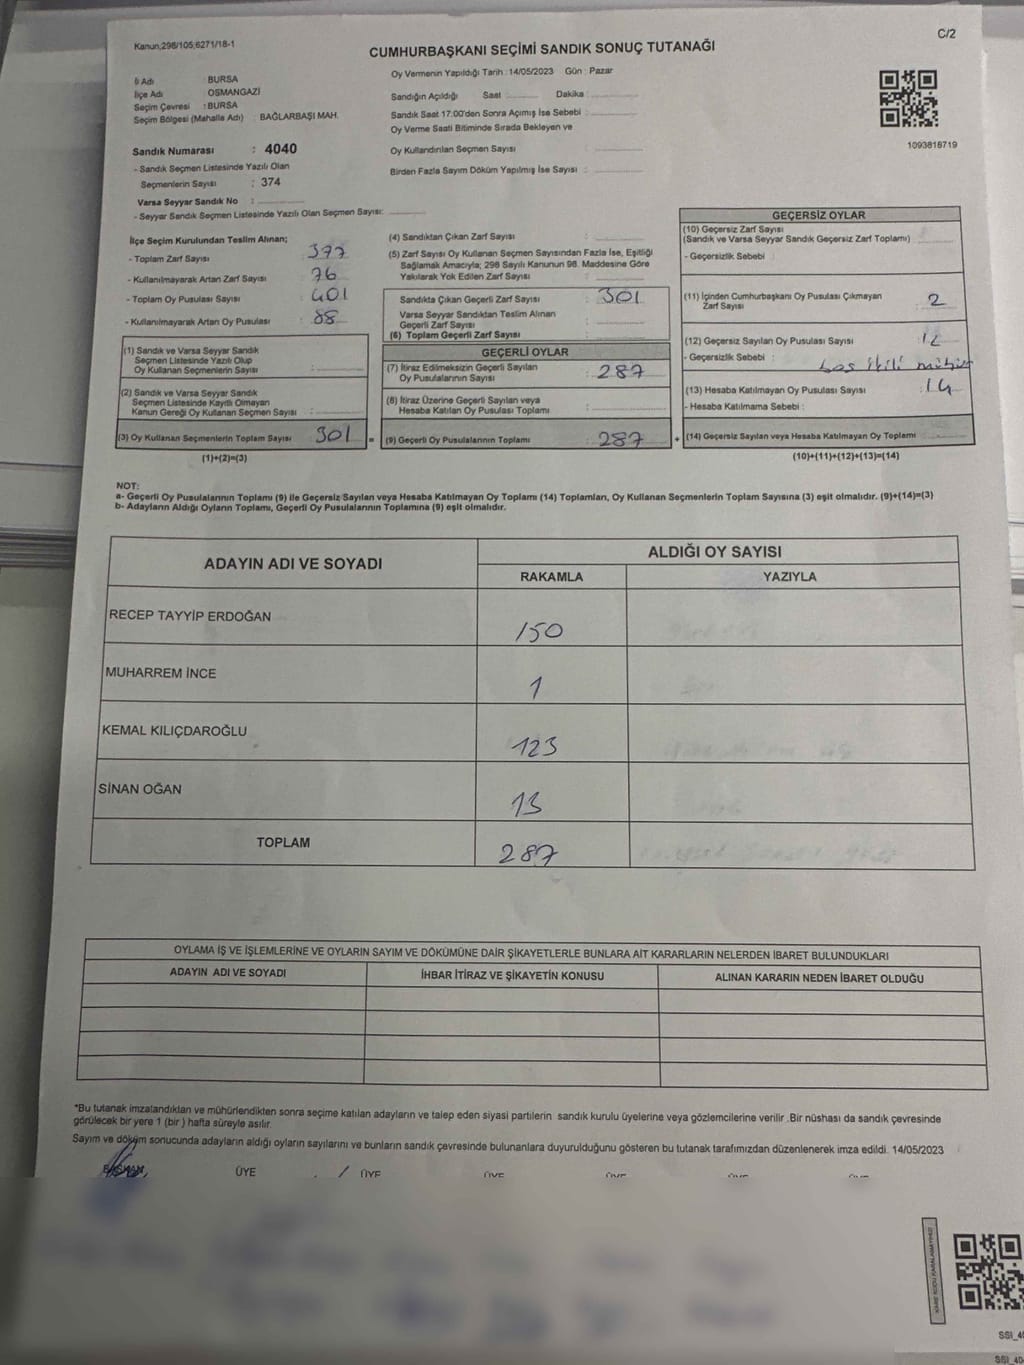 Kanun,298/105,6271/18-1
C/2
CUMHURBAŞKANI SEÇİMİ SANDIK SONUÇ TUTANAĞI
İl Adı : BURSA
İlçe Adı : OSMANGAZİ
Seçim Çevresi : BURSA
Seçim Bölgesi (Mahalle Adı) : BAĞLARBAŞI MAH.
Sandık Numarası : 4040
- Sandık Seçmen Listesinde Yazılı Olan
Seçmenlerin Sayısı : 374
Varsa Seyyar Sandık No :
- Seyyar Sandık Seçmen Listesinde Yazılı Olan Seçmen Sayısı:
Oy Vermenin Yapıldığı Tarih : 14/05/2023 Gün : Pazar
Sandığın Açıldığı Saat Dakika :
Sandık Saat 17:00'den Sonra Açımış İse Sebebi :
Oy Verme Saati Bitiminde Sırada Bekleyen ve
Oy Kullandırılan Seçmen Sayısı :
Birden Fazla Sayım Döküm Yapılmış İse Sayısı :
1093818719
İlçe Seçim Kurulundan Teslim Alınan;
- Toplam Zarf Sayısı : 377
- Kullanılmayarak Artan Zarf Sayısı : 76
- Toplam Oy Pusulası Sayısı : 401
- Kullanılmayarak Artan Oy Pusulası : 88
(1) Sandık ve Varsa Seyyar Sandık
Seçmen Listesinde Yazılı Olup
Oy Kullanan Seçmenlerin Sayısı :
(2) Sandık ve Varsa Seyyar Sandık
Seçmen Listesinde Kayıtlı Olmayan
Kanun Gereği Oy Kullanan Seçmen Sayısı :
(3) Oy Kullanan Seçmenlerin Toplam Sayısı : 301 =
(1)+(2)=(3)
(4) Sandıktan Çıkan Zarf Sayısı :
(5) Zarf Sayısı Oy Kullanan Seçmen Sayısından Fazla İse, Eşitliği
Sağlamak Amacıyla; 298 Sayılı Kanunun 98. Maddesine Göre
Yakılarak Yok Edilen Zarf Sayısı :
Sandıkta Çıkan Geçerli Zarf Sayısı : 301
Varsa Seyyar Sandıktan Teslim Alınan
Geçerli Zarf Sayısı :
(6) Toplam Geçerli Zarf Sayısı :
GEÇERLİ OYLAR
(7) İtiraz Edilmeksizin Geçerli Sayılan
Oy Pusulalarının Sayısı : 287
(8) İtiraz Üzerine Geçerli Sayılan veya
Hesaba Katılan Oy Pusulası Toplamı :
(9) Geçerli Oy Pusulalarının Toplamı : 287 +
GEÇERSİZ OYLAR
(10) Geçersiz Zarf Sayısı
(Sandık ve Varsa Seyyar Sandık Geçersiz Zarf Toplamı) :
- Geçersizlik Sebebi :
(11) İçinden Cumhurbaşkanı Oy Pusulası Çıkmayan
Zarf Sayısı : 2
(12) Geçersiz Sayılan Oy Pusulası Sayısı : 12
- Geçersizlik Sebebi : boş ikili mühür
(13) Hesaba Katılmayan Oy Pusulası Sayısı : 14
- Hesaba Katılmama Sebebi :
(14) Geçersiz Sayılan veya Hesaba Katılmayan Oy Toplamı :
(10)+(11)+(12)+(13)=(14)
NOT:
a- Geçerli Oy Pusulalarının Toplamı (9) ile Geçersiz Sayılan veya Hesaba Katılmayan Oy Toplamı (14) Toplamları, Oy Kullanan Seçmenlerin Toplam Sayısına (3) eşit olmalıdır. (9)+(14)=(3)
b- Adayların Aldığı Oyların Toplamı, Geçerli Oy Pusulalarının Toplamına (9) eşit olmalıdır.
ADAYIN ADI VE SOYADI ALDIĞI OY SAYISI
RAKAMLA YAZIYLA
RECEP TAYYİP ERDOĞAN 150
MUHARREM İNCE 1
KEMAL KILIÇDAROĞLU 123
SİNAN OĞAN 13
TOPLAM 287
OYLAMA İŞ VE İŞLEMLERİNE VE OYLARIN SAYIM VE DÖKÜMÜNE DAİR ŞİKAYETLERLE BUNLARA AİT KARARLARIN NELERDEN İBARET BULUNDUKLARI
ADAYIN ADI VE SOYADI İHBAR İTİRAZ VE ŞİKAYETİN KONUSU ALINAN KARARIN NEDEN İBARET OLDUĞU
*Bu tutanak imzalandıktan ve mühürlendikten sonra seçime katılan adayların ve talep eden siyasi partilerin sandık kurulu üyelerine veya gözlemcilerine verilir .Bir nüshası da sandık çevresinde
görülecek bir yere 1 (bir ) hafta süreyle asılır.
Sayım ve döküm sonucunda adayların aldığı oyların sayılarını ve bunların sandık çevresinde bulunanlara duyurulduğunu gösteren bu tutanak tarafımızdan düzenlenerek imza edildi. 14/05/2023
BAŞKAN ÜYE ÜYE ÜYE
KARE KODU KARALAMAYINIZ!